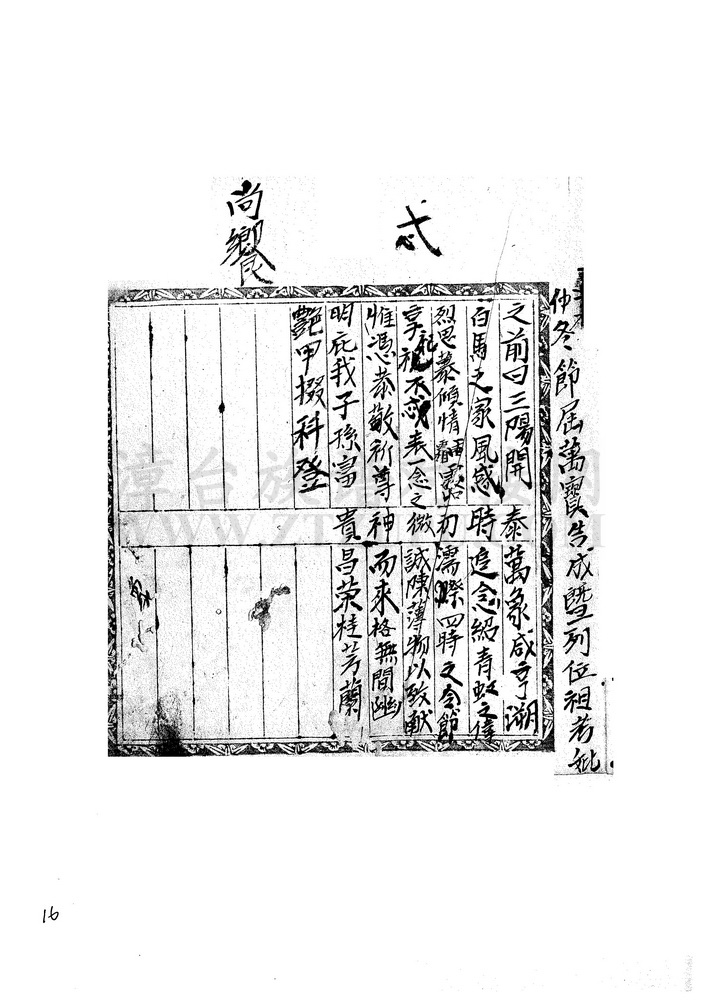 仲冬節屆萬寶告成暨列位祖考妣
之前曰三陽開泰萬象咸亨溯
白馬之家風感時追念紹青蚨之偉
烈思慕傾情露初濡際四時之令節
享祀不忒表一念之微誠陳薄物以致獻
惟憑恭敬祈尊神而來格無間幽
明庇我子孫富貴昌榮桂芳蘭
艷甲掇科登
尚饗
弍
漳台族
WWW.ZT
16